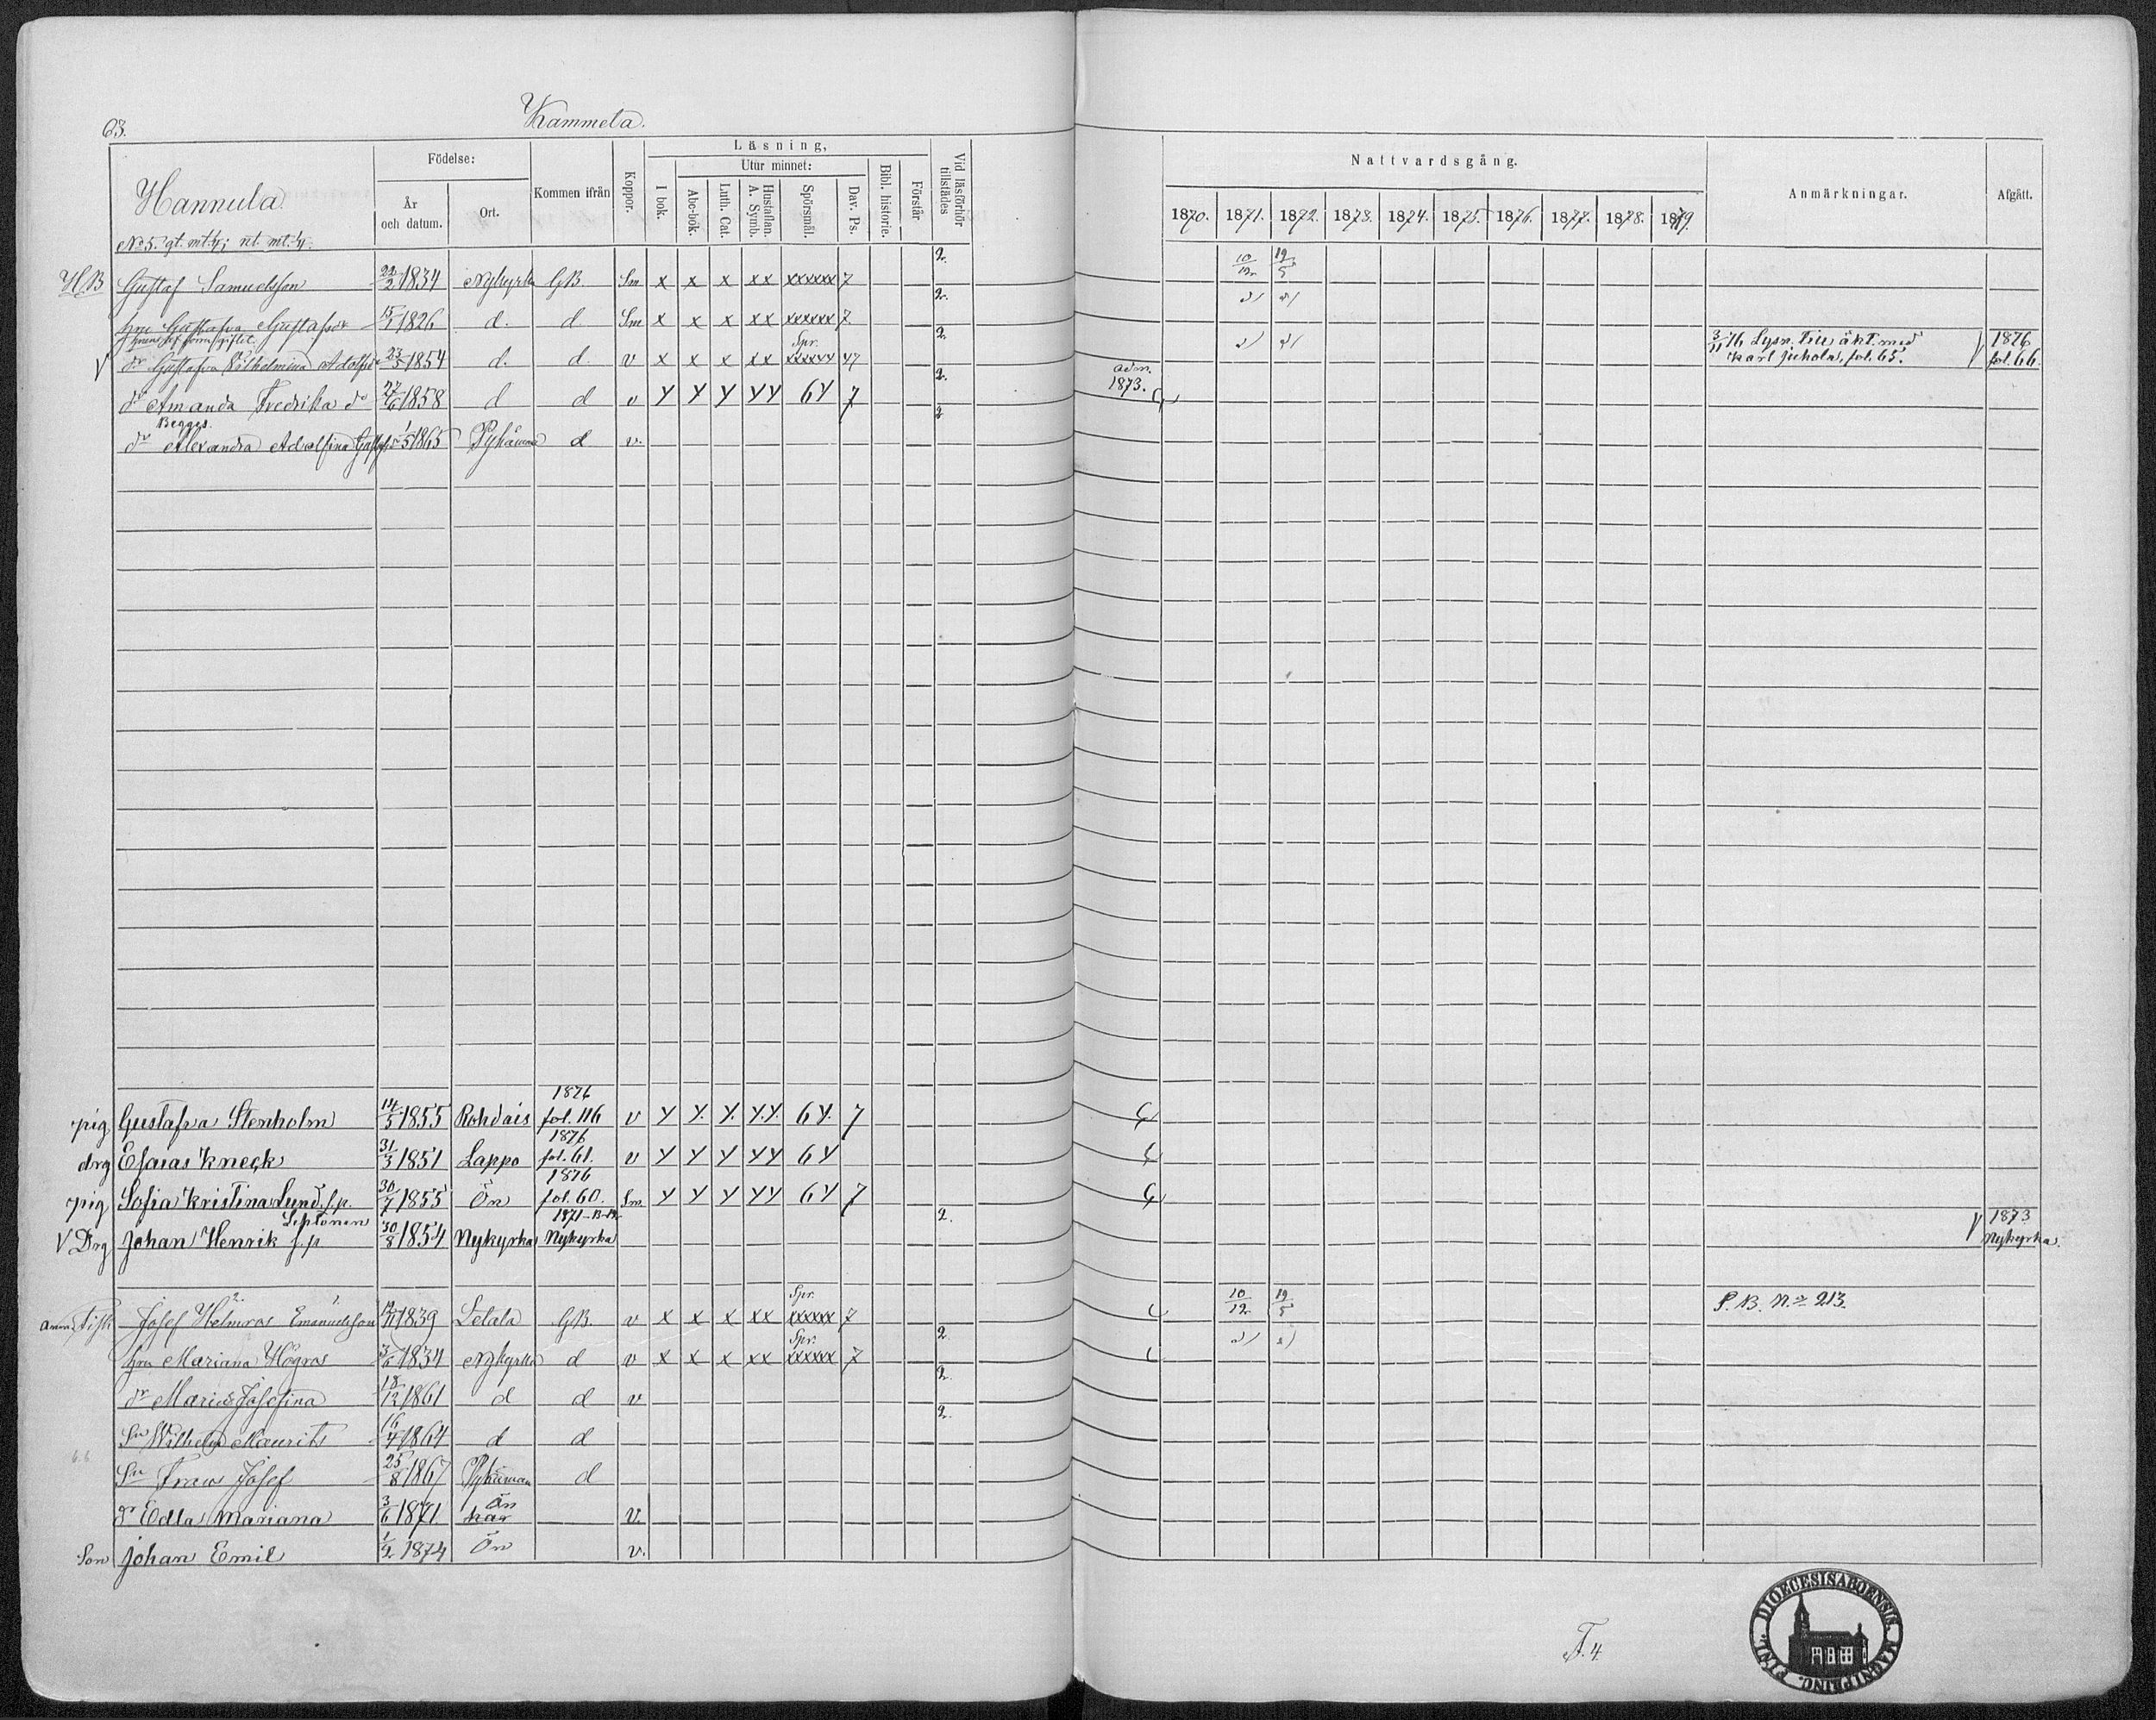 63.
Kammela.
Hannula
No 5. gt. mt. 1/4; nt. mt. 1/4.
Födelse:
År och datum.
Ort.
Kommen ifrån
Koppor.
Läsning,
I bok.
Utur minnet:
Abc-bok.
Luth. Cat.
Hustaflan. A. Symb.
Spörsmål.
Dav. Ps.
Bibl. historie.
Förstår
Vid läsförhör tillstädes
Nattvardsgång.
1870. 1871. 1872. 1873. 1874. 1875. 1876. 1877. 1878. 1879.
Anmärkningar.
Afgått.
HB Gustaf Samuelsson 22/2 1834 Nykyrka GB. Sm x x x xx xxxxxx 7 2. 10/12 19/5
hru Gustafva Gustafsdr 15/1 1826 d. d Sm x x x xx xxxxxx 7 2.
V dr Gustafva Vilhelmina Adolfsdr 23/3 1854 d. d. v x x x xx Spr. 2. 3/11 76 Lysn. till äkt. med Karl Juhola, fol. 65. 1876 fol. 66.
dr Amanda Fredrika do 27/6 1858 d d v 7 2. adm. 1873.
Begges
dr Alexandra Adolfina 1/5 1865 Pyhämaa d v. 2
pig Gustafva Stenholm 14/5 1855 Rohdais 1876 fol. 116 v 7
drg Esaias Kneck 31/3 1851 Lappo 1876 fol. 61. v
pig Sofia Kristina Lund f.p. 30/7 1855 Ön 1876 fol. 60. Sm. 7
V Drg Johan Henrik f.p 30/8 1854 Nykyrka 1871 Nykyrka 2. 1873 Nykyrka.
Fisk Josef Helmros Emanuelsson 1839 Letala GB. v x x x xx Spr. xxxxxx 7 10/12 19/5 P.B. No 213.
hru Mariana Högros 3/5 1834 Nykyrka d v x x x xx Spr. xxxxxx 7 2
dr Maria Josefina 18/12 1861 d d v 2.
Sn Wilhelm Maurits 16/4 1864 d d 2.
Sn Frans Josef 25/8 1867 Pyhämaa d
dr Edla Mariana 3/6 1871 Ön här v.
Son Johan Emil 1/2 1874 Ön v.
F. 4.
DIOECESIS ABOENSIS. MAGNI PRINC. FINL.